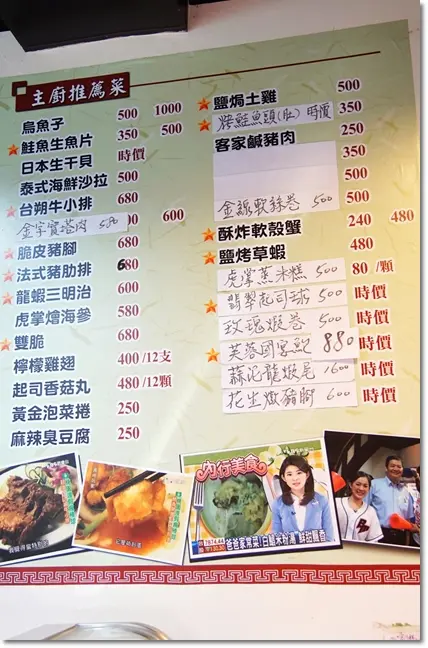 主廚推薦菜
烏魚子 500 1000
鮭魚生魚片 350 500
日本生干貝 時價
泰式海鮮沙拉 500
台朔牛小排 680
金字寶塔肉 580 600
脆皮豬腳 680
法式豬肋排 680
龍蝦三明治 600
虎掌燴海參 580
雙脆 680
檸檬雞翅 400/12支
起司香菇丸 480/12顆
黃金泡菜捲 250
麻辣臭豆腐 250
鹽焗土雞 500
烤鮭魚頭(肚)時價 350
客家鹹豬肉 250
350
500
金線軟絲卷 500 500
酥炸軟殼蟹 240 480
鹽烤草蝦 480
虎掌蒸米糕 500 80/顆
翡翠起司球 500 時價
玫瑰蝦卷 500 時價
芙蓉國宴 880 時價
蒜泥龍蝦尾 1600 時價
花生燉豬腳 600 時價
內行美食
爸爸家常菜!白鯧米粉湯 鮮甜飄香